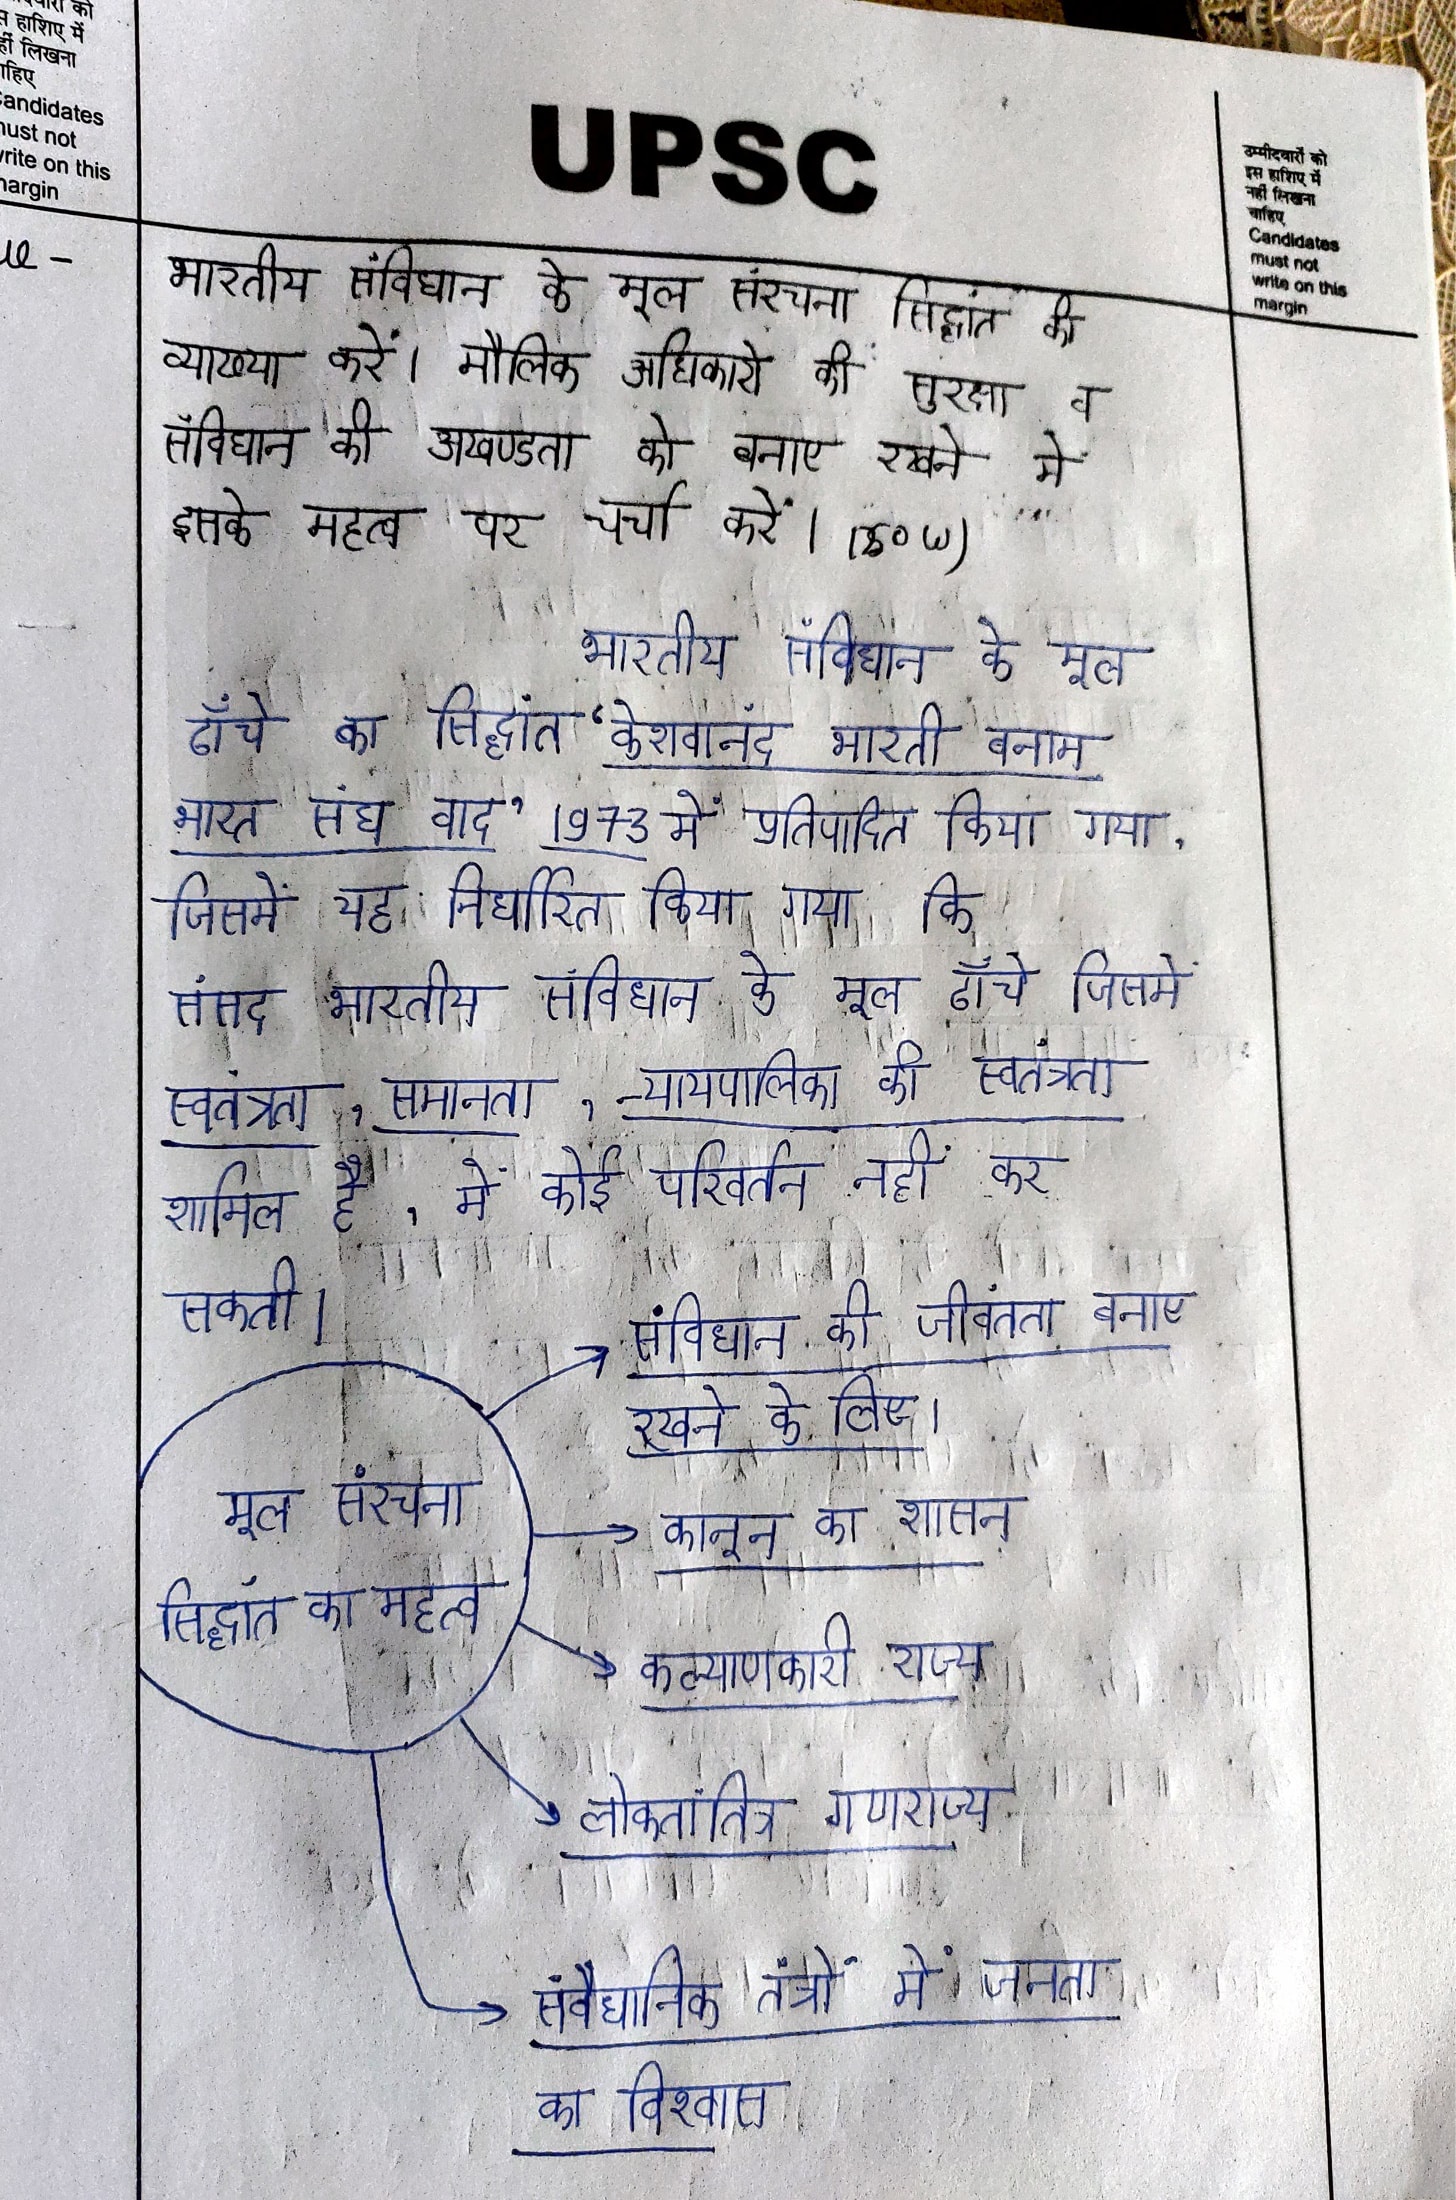 हाशिए में
लिखना
Candidates
must not
write on this
margin
UPSC
उम्मीदवारों को
इस हाशिए में
नहीं लिखना
चाहिए
Candidates
must not
write on this
margin
भारतीय संविधान के मूल संरचना सिद्धांत की
व्याख्या करें। मौलिक अधिकारो की सुरक्षा व
संविधान की अखण्डता को बनाए रखने में
इसके महत्व पर चर्चा करें।
भारतीय संविधान के मूल
ढाँचे का सिद्धांत 'केशवानंद भारती बनाम
भारत संघ वाद' 1973 में प्रतिपादित किया गया,
जिसमें यह निर्धारित किया गया कि
संसद भारतीय संविधान के मूल ढाँचे जिसमें
स्वतंत्रता, समानता, न्यायपालिका की स्वतंत्रता
शामिल है, में कोई परिवर्तन नहीं कर
सकती।
मूल संरचना
सिद्धांत का महत्व
संविधान की जीवंतता बनाए
रखने के लिए।
कानून का शासन
कल्याणकारी राज्य
लोकतांत्रि गणराज्य
संवैधानिक तंत्रों में जनता
का विश्वास